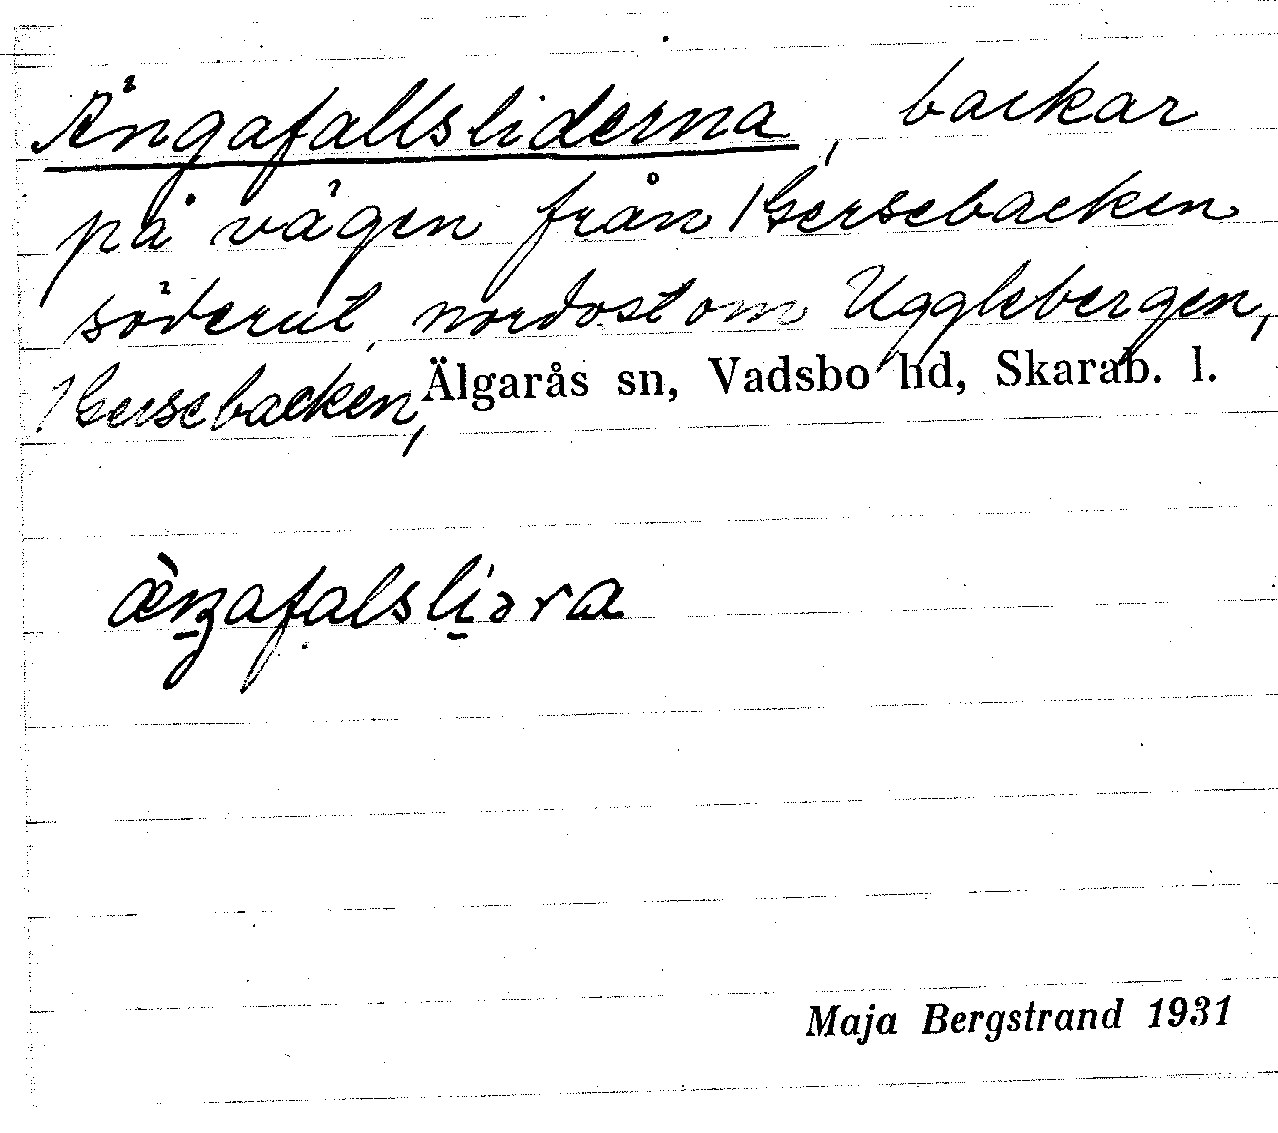 Ängafallsliderna, backar
på vägen från Gersebacken
söderut, nordost om Ugglebergen,
Gersebacken, Älgarås sn, Vadsbo hd, Skarab. l.
æ̀ŋafalsliəra
Maja Bergstrand 1931